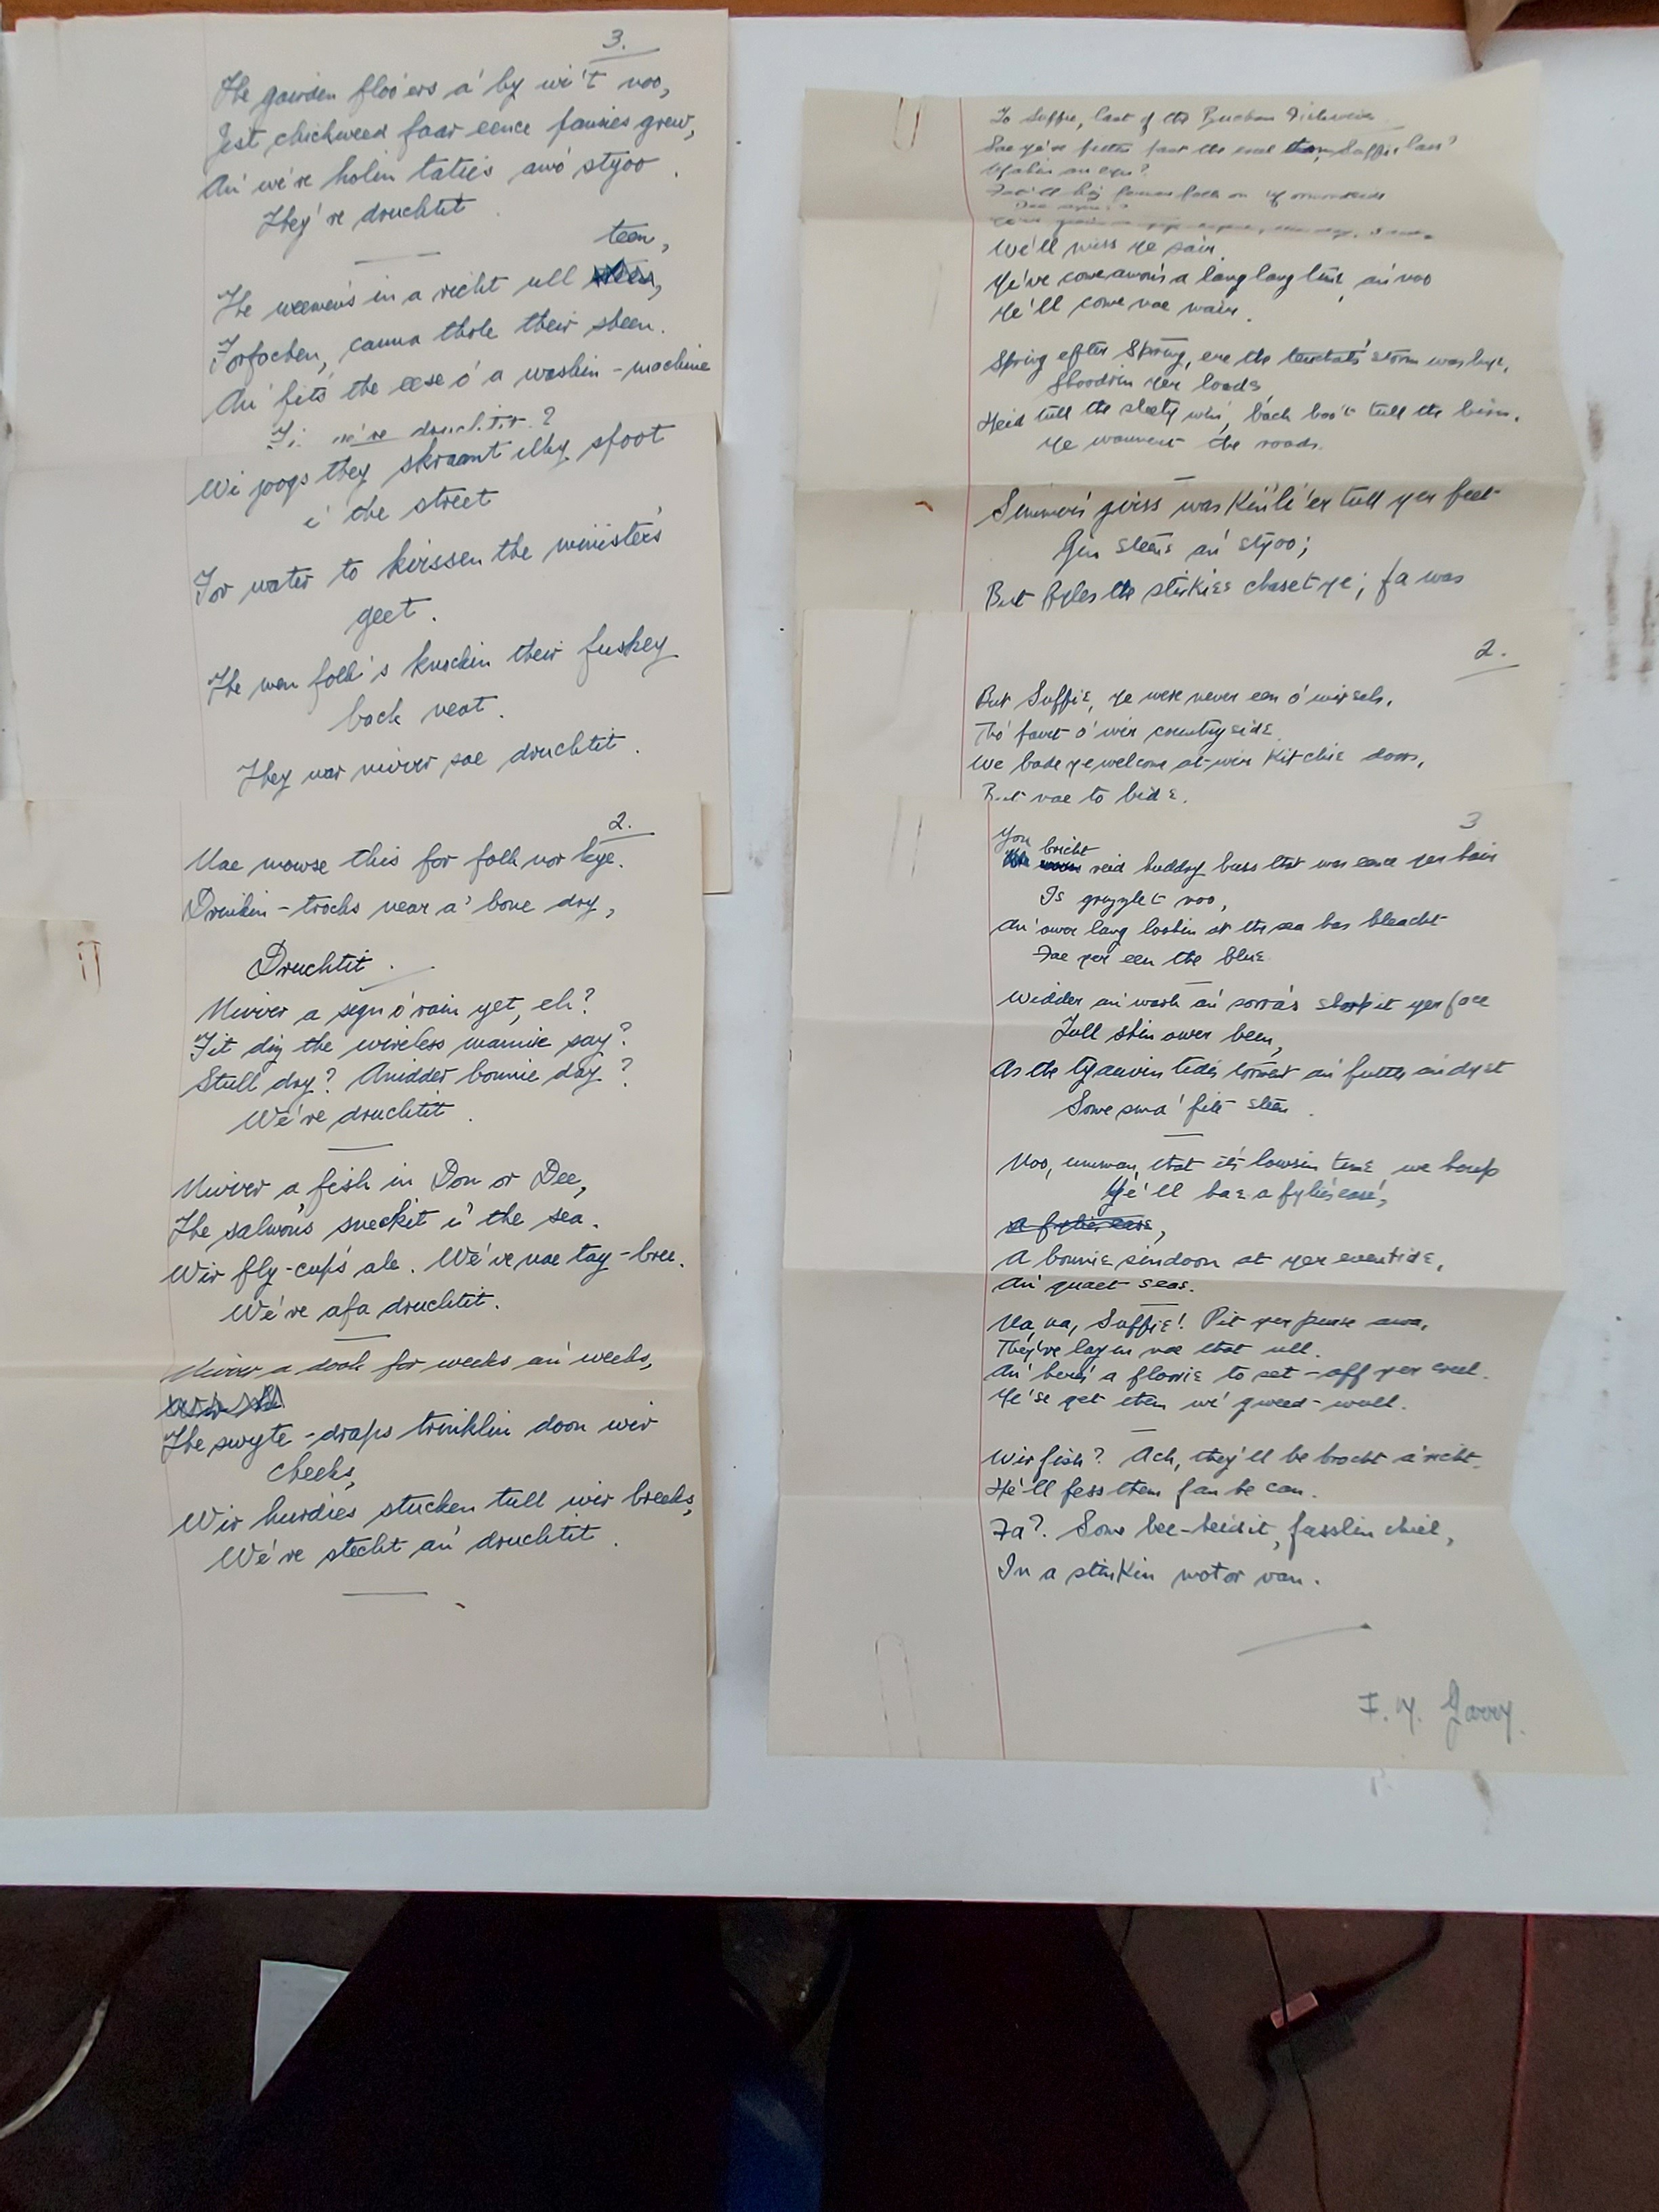 3.
The gairden floo'ers a' by wi't noo,
Jest chickweed faar eence pansies grew,
An' we're holin tatties awo' styoo.
They're druchtit.
teen,
The weemen's in a richt ull
Forfochen, canna thole their sheen.
An' fit's the eese o' a washin-machine
we're druchtit?
Wi joogs they skraamt ilky spoot
i' the street
For water to kirssen the meenister's
geet.
The men folk's knockin their fuskey
back neat.
They war nivver sae druchtit.
2.
Nae mowse this for folk nor kye.
Drinkin-trochs near a' bone dry,
Druchtit.
Nivver a sign o' rain yet, eh?
Fit diz the wireless mannie say?
Stull dry? Anidder bonnie day?
We're druchtit.
Nivver a fish in Don or Dee,
The salmon's sneckit i' the sea.
Wir fly-cup's ale. We've nae tay-bree.
We're afa druchtit.
Nivver a dook for weeks an' weeks,
The swyte-draps trinklin doon wir
cheeks,
Wir hurdies stucken tull wir breeks,
We're stecht an' druchtit.
To Suffie, last of the Buchan Fishwives
Sae ye've futten faat the creel Suffie lass?
We'll miss ye sair.
Ye've come amon's a lang lang time, an' noo
Ye'll come nae mair.
Spring efter Spring, ere the teuchats' storm was bye,
Shoodrin yer loads
Heid tull the sleety win', back boo't tull the birn,
Ye wannert the roads.
Simmer's girss was kin'li'er tull yer feet
Gin steens an' styoo;
But fyles the stirkies chaset ye; fa was
2.
But Suffie, ye were never een o' wirsels,
Tho' faur't o' wir countryside.
We bade ye welcome at wir kitchie doors,
But nae to bide.
3
Yon
bricht
reid huddry buss that was eence yer hair
Is grizzlet noo,
An' ower lang lookin at the sea has bleacht
Fae yer een the blue.
Widder an' wark an' sorra's shapit yer face
Tull skin ower been,
As the tyaavin tides torment an' futtle an' dyst
Some sma' fite steen.
Noo, umman, that it's lowsin time, we houp
Ye'll hae a fylie's ease,
a fylie's ease,
A bonnie sindoon at yer eventide,
An' quaet seas.
Na, na, Suffie! Pit yer purse awa,
They're layin nae that ull.
An' here's a flowrie to set-off yer creel.
Ye'se get them wi' gweed-wull.
Wir fish? Ach, they'll be brocht a' richt.
He'll fess them fan he can.
Fa? Some bee-heidit, fasslin chiel,
In a stinkin motor van.
F. M. Garry.